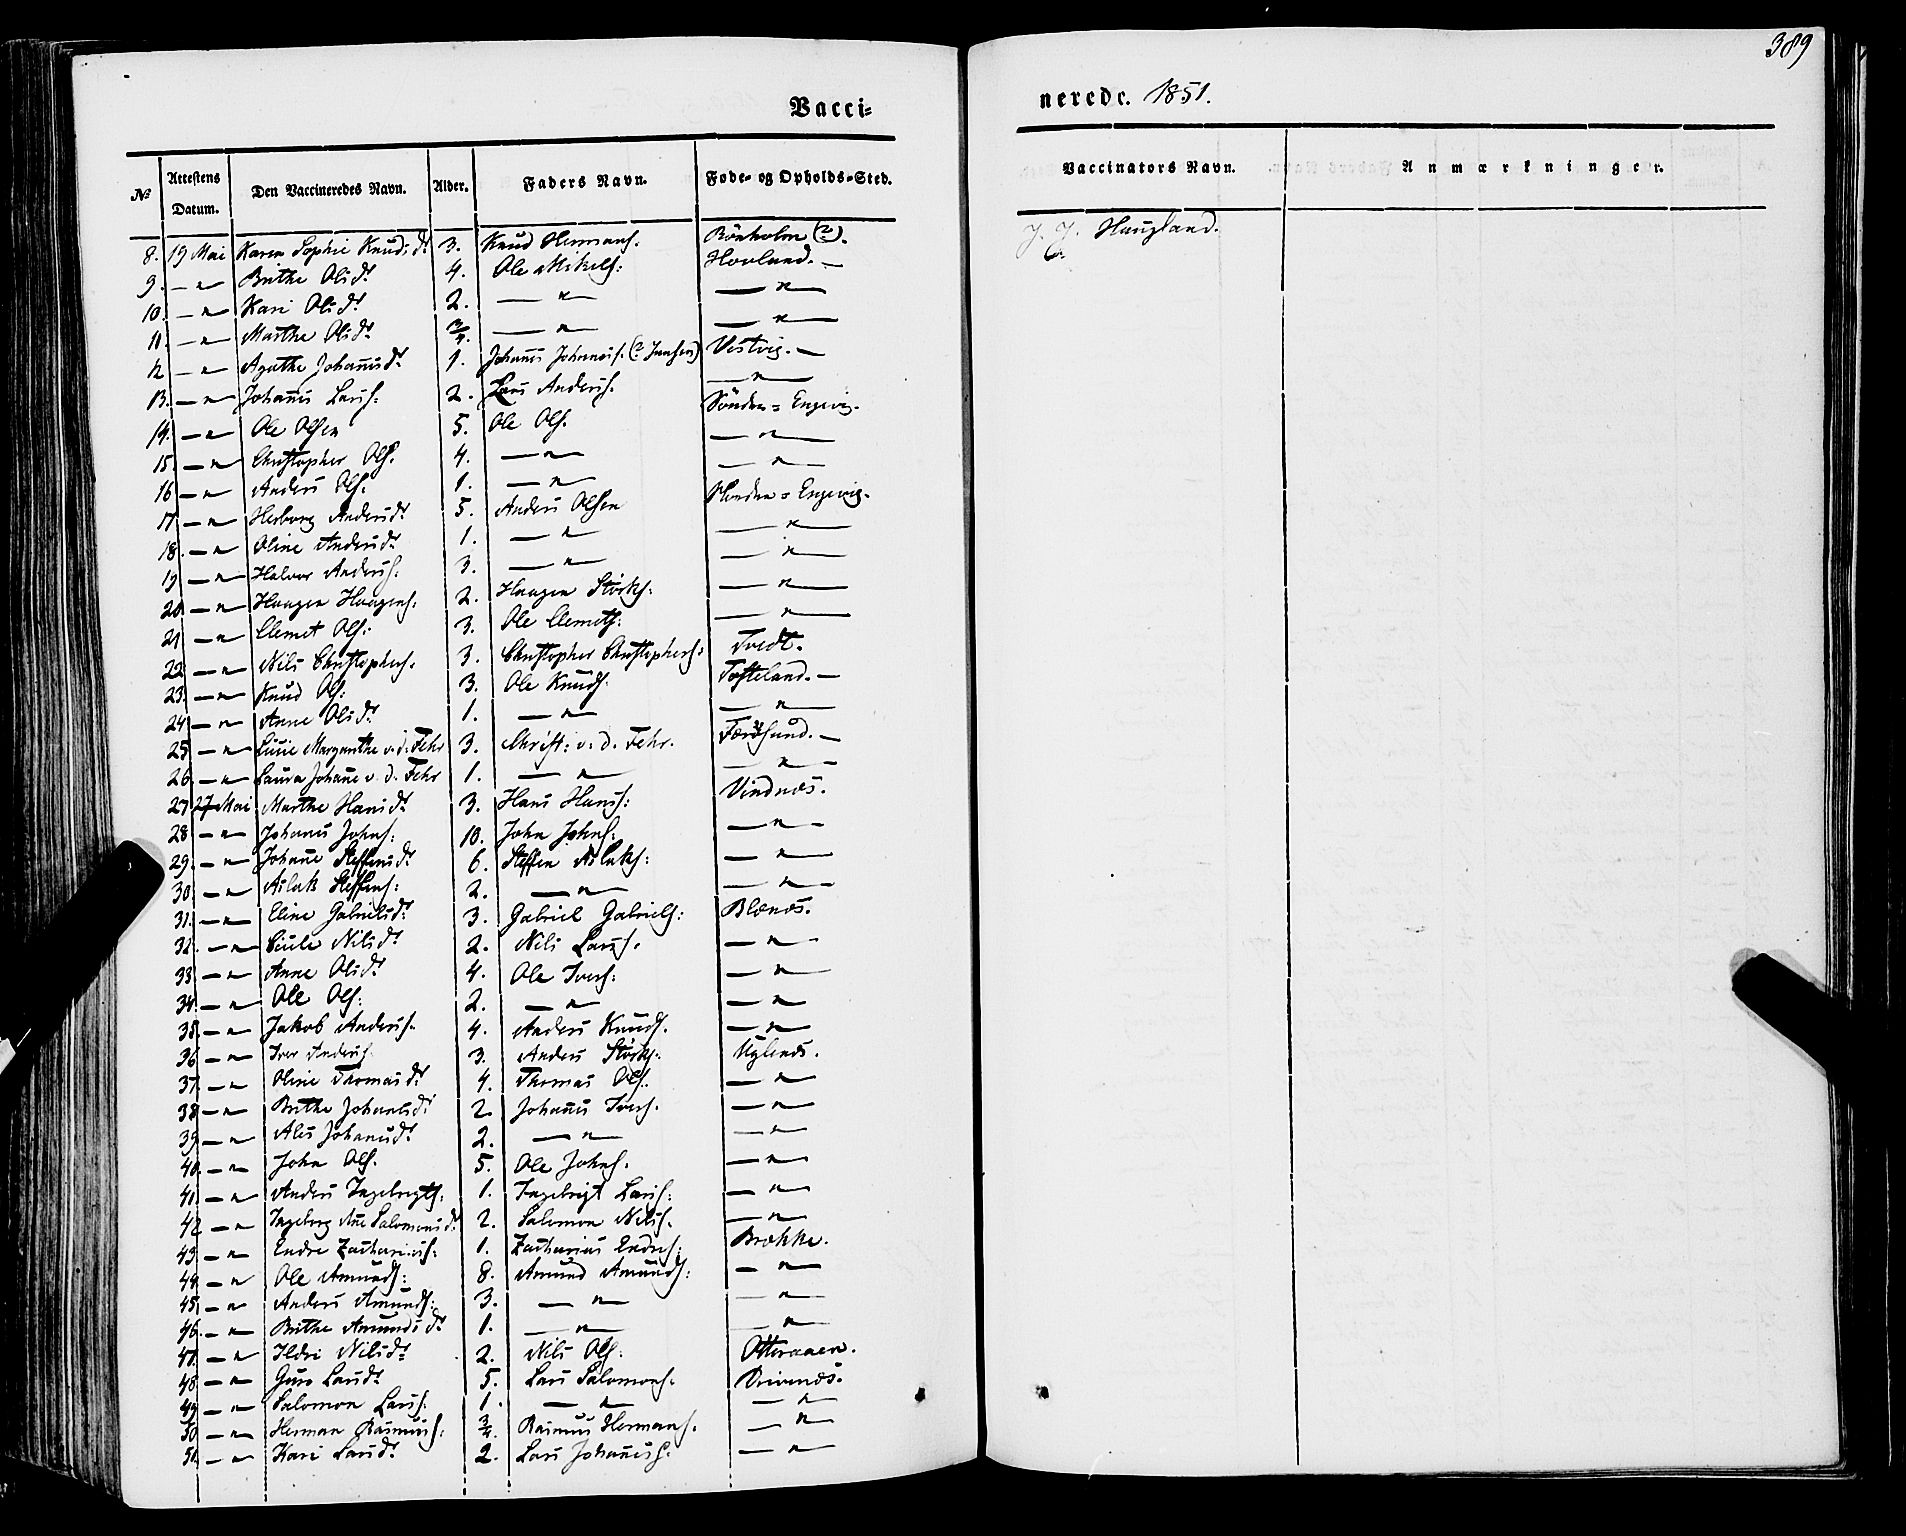 389
Vacci=
nerede. 1851.
№ Attestens Datum. Den Vaccineredes Navn. Alder. Faders Navn. Føde- og Opholds-Sted.
Vaccinators Navn. Anmærkninger.
8. 19 Mai Karen Sophie Knudsdr 3. Knud Hermans. Rönholm (?).
J. J. Haugland.
9. — " — Brithe Olsdr 4. Ole Mikels: Hovland. —
10. — " — Kari Olsdr 2. — " — — " —
11. — " — Marthe Olsdr 3/4. — " — — " —
12 — " — Agathe Johannisdr 1. Johanns Johanns. (? Jansen) Vestvig. —
13. — " — Johanns Lars: 2. Lars Anders. — " —
14. — " — Ole Olsen 5. Ole Ols. Sönder = Engevig.
15. — " — Christopher Ols. 4. — " — — " —
16 — " — Anders Ols. 1. — " — — " —
17 — " — Herborg Andersdr 5. Anders Olsen = Engevig.
18. — " — Oline Andersdr 1. — " — — " —
19 — " — Halvor Anders. 3. — " — — " —
20 — " — Haagen Haagens. 2. Haagen Störks: — " —
21 — " — Clemet Ols: 3. Ole Clemets: — " —
22 — " — Nils Christophers. 3. Christopher Christophers: Tvedt.
23. — " — Knud Ols: 3. Ole Knuds. Tofteland. —
24 — " — Anne Olsdr 1. — " — — " —
25 — " — Margrethe v. d. Fehr 3. Christ: v. d. Fehr. Færösund. —
26. — " — Laura Johanne v. d. Fehr 1. — " — — " —
27 27 Mai Marthe Hansdr 3. Hans Hans: Vindnæs.
28 — " — Johanns Johns: 10. John Johns: — " —
29. — " — Johanne Steffensdr 6. Steffen Aslaks: — " —
30 — " — Aslak Steffens: 2. — " — — " —
31. — " — Eline Gabrielsdr 3. Gabriel Gabriels: Blænæs.
32. — " — Nilsdr 2. Nils Lars. — " —
33 — " — Anne Olsdr 4. Ole Ivers: — " —
34. — " — Ole Ols: 2. — " — — " —
35. — " — Jakob Anders. 4. Anders Knuds. — " —
36 — " — Iver Anders. 3. Anders Störks: Uglenæs.
37. — " — Oline Thomasdr 4. Thomas Ols. — " —
38 — " — Brithe Johannsdr 2. Johanns Ivers. — " —
39. — " — Ales Johannsdr 2. — " — — " —
40. — " — John Ols. 5. Ole Johns. — " —
41. — " — Anders Ingebrigts: 1. Ingebrigt Lars: — " —
42 — " — Ingeborg Ane Salomonsdr 2. Salomon Nils. — " —
43 — " — Endre Zacharias. 1. Zacharias Endres: Brække.
44. — " — Ole Amunds: 8. Amund Amunds: — " —
45. — " — Anders Amunds: 3. — " — — " —
46. — " — Brithe Amundsdr 1. — " — — " —
47. — " — Ildri Nilsdr 2. Nils Ols: Otteraaen.
48 — " — Guro Larsdr 5. Lars Salomons. Drivenæs.
49 — " — Salomon Lars. 1. — " — — " —
50 — " — Herman Rasmus: 3/4. Rasmus Hermans. — " —
51. — " — Kari Larsdr 2. Lars Johanns. — " —